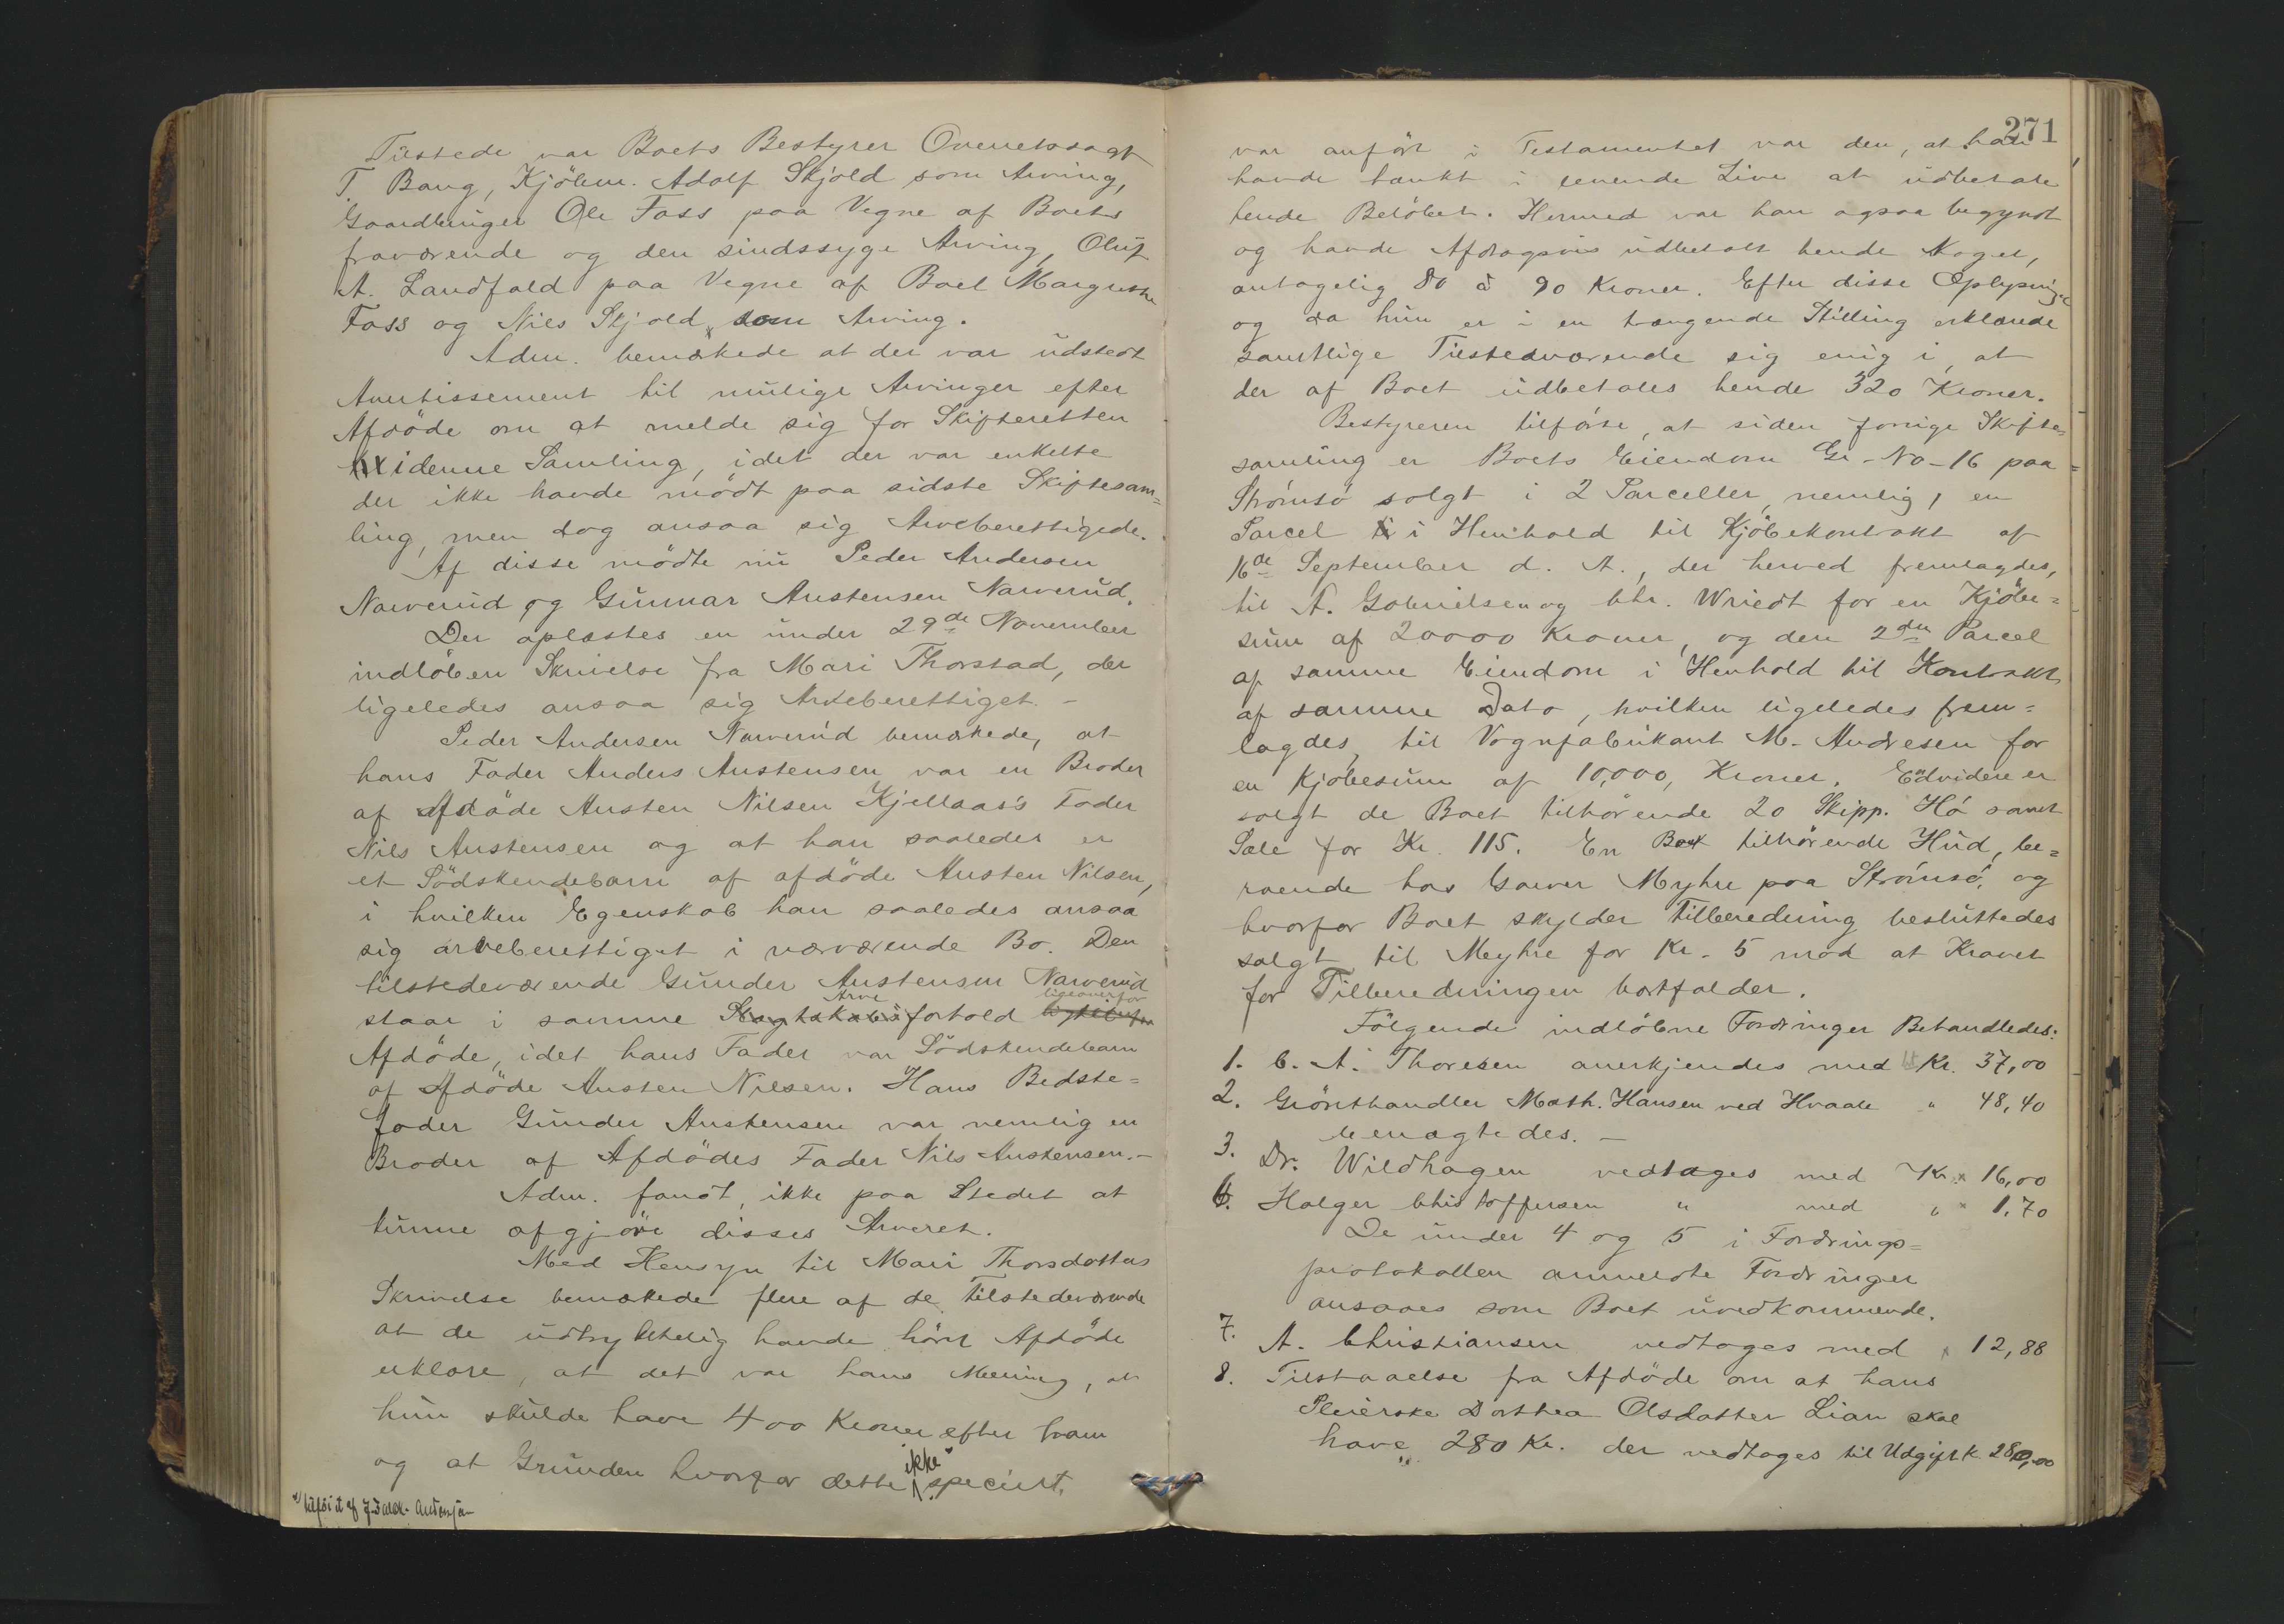 Tilstede var Boets Bestyrer Overretssagf
T. Bang, Kjöbm. Adolf Skjold som Arving,
Gaardbruger Ole Foss paa Vegne af Boets
fraværende og den sindssyge Arving, Oluf
A. Landfald paa Vegne af Boel Margrethe
Foss og Nils Skjold som Arving.
Adm. bemærkede at der var udstedt
Avertissement til mulige Arvinger efter
Afdöde om at melde sig for Skifteretten
i denne Samling, idet der var enkelte
der ikke havde mödt paa sidste Skiftesam=
ling, men dog ansaa sig Arveberettigede.
Af disse mödte nu Peder Andersen
Narverud og Gunnar Austensen Narverud.
Der oplæstes en under 29de November
indlöben Skrivelse fra Mari Thorstad, der
ligeledes ansaa sig Arveberettiget. -
Peder Andersen Narverud bemærkede, at
hans Fader Anders Austensen var en Broder
af Afdöde Austen Nilsen Kjellaas's Fader
Nils Austensen og at han saaledes er
et Södskendebarn af afdöde Austen Nilsen,
i hvilken Egenskab han saaledes ansaa
sig arveberettiget i nærværende Bo. Den
tilstedeværende Gunder Austensen Narverud
Arve ligeoverfor
staar i samme Slagtskabsforhold
Afdöde, idet hans Fader var Södskendebarn
af Afdöde Austen Nilsen. Hans Bedste=
fader Gunder Austensen var nemlig en
Broder af Afdödes Fader Nils Austensen. -
Adm. fandt ikke paa Stedet at
kunne afgjöre disses Arveret.
Med Hensyn til Mari Thorsdatters
Skrivelse bemærkede flere af de Tilstedeværende
at de udtrykkelig havde hört Afdöde
erklære, at det var hans Mening, at
hun skulde have 400 Kroner efter ham
ikke
og at Grunden hvorfor dette specielt
271
var anfört i Testamentet var den, at han
havde tænkt i levende Live at udbetale
hende Belöbet. Hermed var han ogsaa begyndt
og havde Afdragsvis udbetalt hende Noget,
antagelig 80 à 90 Kroner. Efter disse Oplysninger
og da hun er i en trængende Stilling erklærede
samtlige Tilstedeværende sig enig i, at
der af Boet udbetales hende 320 Kroner.
Bestyreren tilförte, at siden forrige Skifte=
samling er Boets Eiendom Gr-No-16 paa
Strömsö solgt i 2 Parceller, nemlig, en
Parcel i Henhold til Kjöbekontrakt af
16de September d. A., der herved fremlagdes,
til A. Gabrielsen og Chr. Wriedt for en Kjöbe=
sum af 20000 Kroner, og den 2den Parcel
af samme Eiendom i Henhold til Kontrakt
af samme Dato, hvilken ligeledes frem=
lagdes, til Vognfabrikant M. Andresen for
en Kjöbesum af 10,000, Kroner. Endvidere er
solgt de Boet tilhörende 20 Skipp. Hö samt
Sæle for Kr. 115. En Boet tilhörende Hud, be=
roende hos Garver Myhre paa Strömsö, og
hvorfor Boet skylder Tilberedning besluttedes
solgt til Myhre for Kr. 5 mod at Kravet
for Tilberedningen bortfalder.
Fölgende indlöbne Fordringer Behandledes:
1. C. A. Thoresen anerkjendes med Kr. 37,00
2. Grönthandler Math. Hansen ved Hvaale " 48,40
benægtedes. -
3. Dr. Wildhagen vedtages med Kr. 16,00
6. Holger Christoffersen " med " 1.70
De under 4 og 5 i Fordrings=
protokollen anmeldte Fordringer
ansaaes som Boet uvedkommende.
7. A. Christiansen vedtages med " 12,88
8. Tilstaaelse fra Afdöde om at hans
Pleierske Dorthea Olsdatter Lian skal
have 280 Kr. der vedtages til Udgift K. 280,00